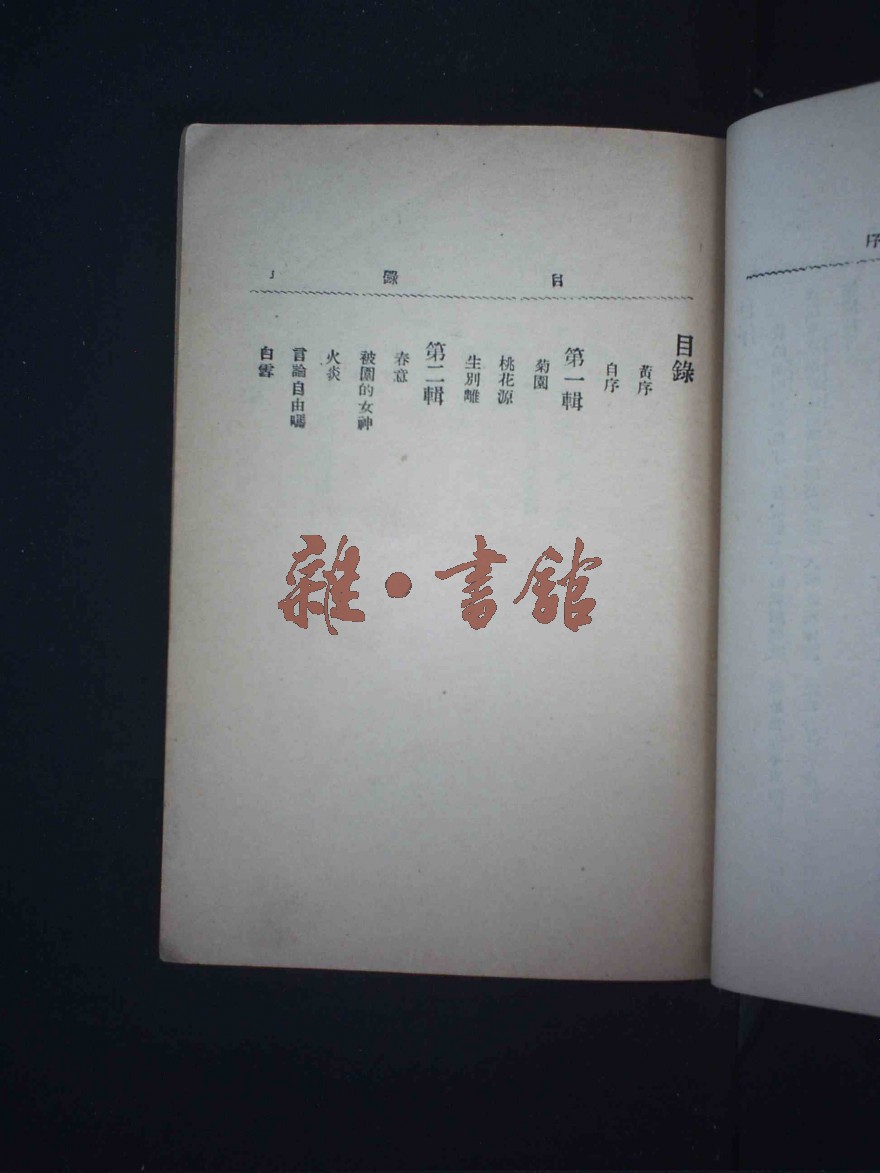 目錄
目錄
黃序
自序
第一輯
菊園
桃花源
生別離
第二輯
春意
被圍的女神
火炎
言論自由囑
白雲
雜•書館
序